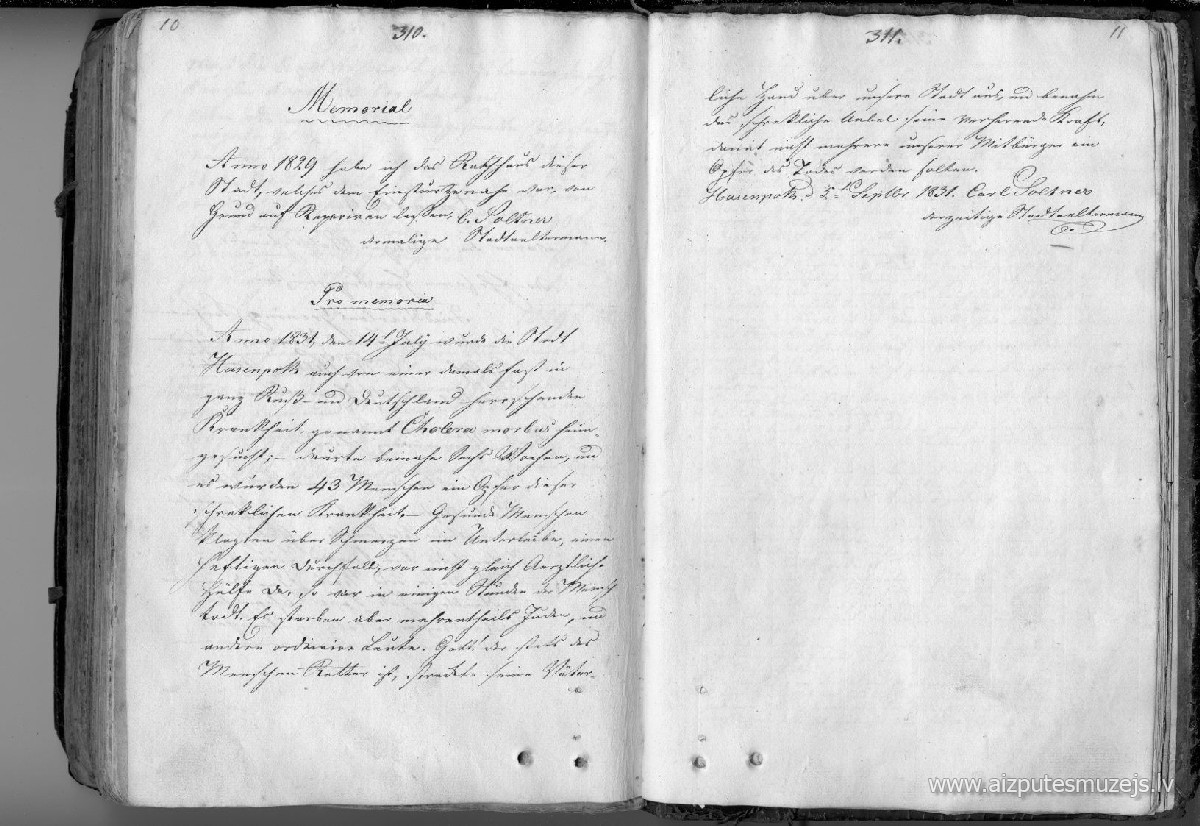 10
310.
Memorial
Anno 1829 habe ich das Rathhaus dieser
Stadt, welches dem Einsturz nahe war, von
Grund auf Repariren lassen. C. Soltner
damalige Stadtaeltermann.
Pro memoria
Anno 1831, den 14t July wurde die Stadt
Hasenpoth auch von einer damals fast in
ganz Ruß- und Deutschland herrschenden
Krankheit genannt Cholera morbus heim-
gesucht; daurte beinahe Sechs Wochen, und
es wurden 43 Menschen ein Opfer dieser
schreklichen Krankheit. – Gesunde Menschen
klagten über Schmerzen im Unterleibe, einen
heftigen Durchfall, war nicht gleich Aerztliche
Hülfe da, so war in einigen Stunden der Mensch
todt. Es starben aber mehrentheils Juden, und
andere ordinaire Leute. Gott! der stets des
Menschen Retter ist, streckte seine Väter-
311.
11
liche Hand über unsere Stadt aus, und benahm
das schrekliche Uebel seine verherende Kraft,
damit nicht mehrere unserer Mitbürger ein
Opfer des Todes werden sollten.
Hasenpoth, d 5ten Septbr 1831. Carl Soltner
derzeitige Stadtaeltermann
www.aizputesmuzejs.lv